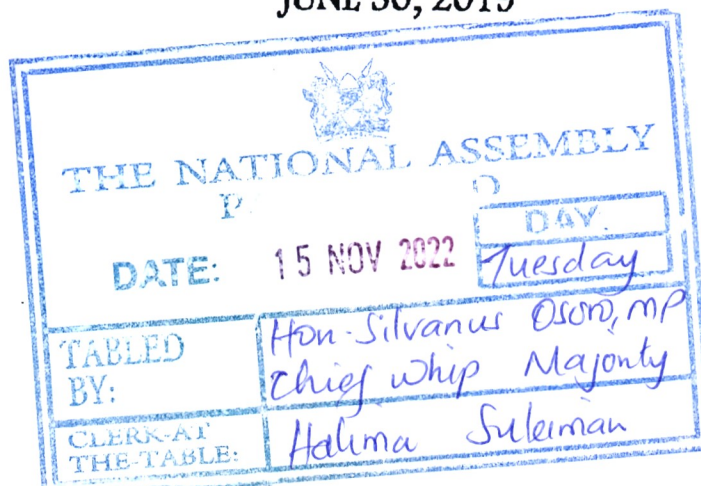 JUNE 30, 2015
THE NATIONAL ASSEMBLY
P
DAY.
DATE: 15 NOV 2022 Tuesday
TABLED BY:
Hon. Silvanus Osoro, MP
Chief Whip Majority
CLERK-AT THE-TABLE:
Halima Suleiman